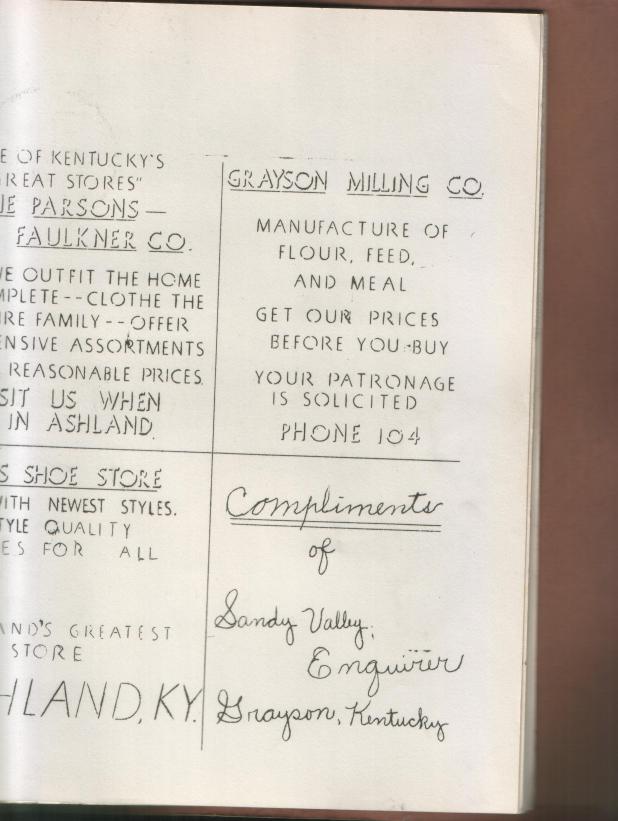 E OF KENTUCKY'S
REAT STORES"
PARSONS—
FAULKNER CO.
OUTFIT THE HOME
MPLETE--CLOTHE THE
IRE FAMILY--OFFER
ENSIVE ASSORTMENTS
REASONABLE PRICES.
SIT US WHEN
IN ASHLAND.
GRAYSON MILLING CO.
MANUFACTURE OF
FLOUR, FEED,
AND MEAL
GET OUR PRICES
BEFORE YOU-BUY
YOUR PATRONAGE
IS SOLICITED
PHONE 104
S SHOE STORE
WITH NEWEST STYLES.
TYLE QUALITY
ES FOR ALL
AND'S GREATEST
STORE
HLAND, KY.
Compliments
of
Sandy Valley,
Enquirer
Grayson, Kentucky